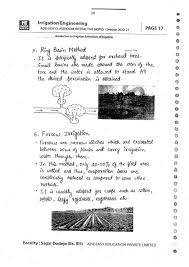 Irrigation Engineering
PAGE 17
5. Ring Basin Method
→ It is specially adopted for orchard trees.
Small basins are made around the stem of the
tree and the water is allowed to stand till
the desired percolation is obtained.
6. Furrow Irrigation
→ Furrows are narrow ditches which are excavated
between rows of plants and carry irrigation
water through them.
→ In this method, only 20-50% of the field area
is wetted and thus, evaporation losses are
considerably reduced as compared to other
methods.
→ It is usually adopted on crops such as cotton,
potato, sugarcane, vegetables etc.
Faculty : Sagar Dodeja (Ex. IES) ADE EASY EDUCATION PRIVATE LIMITED